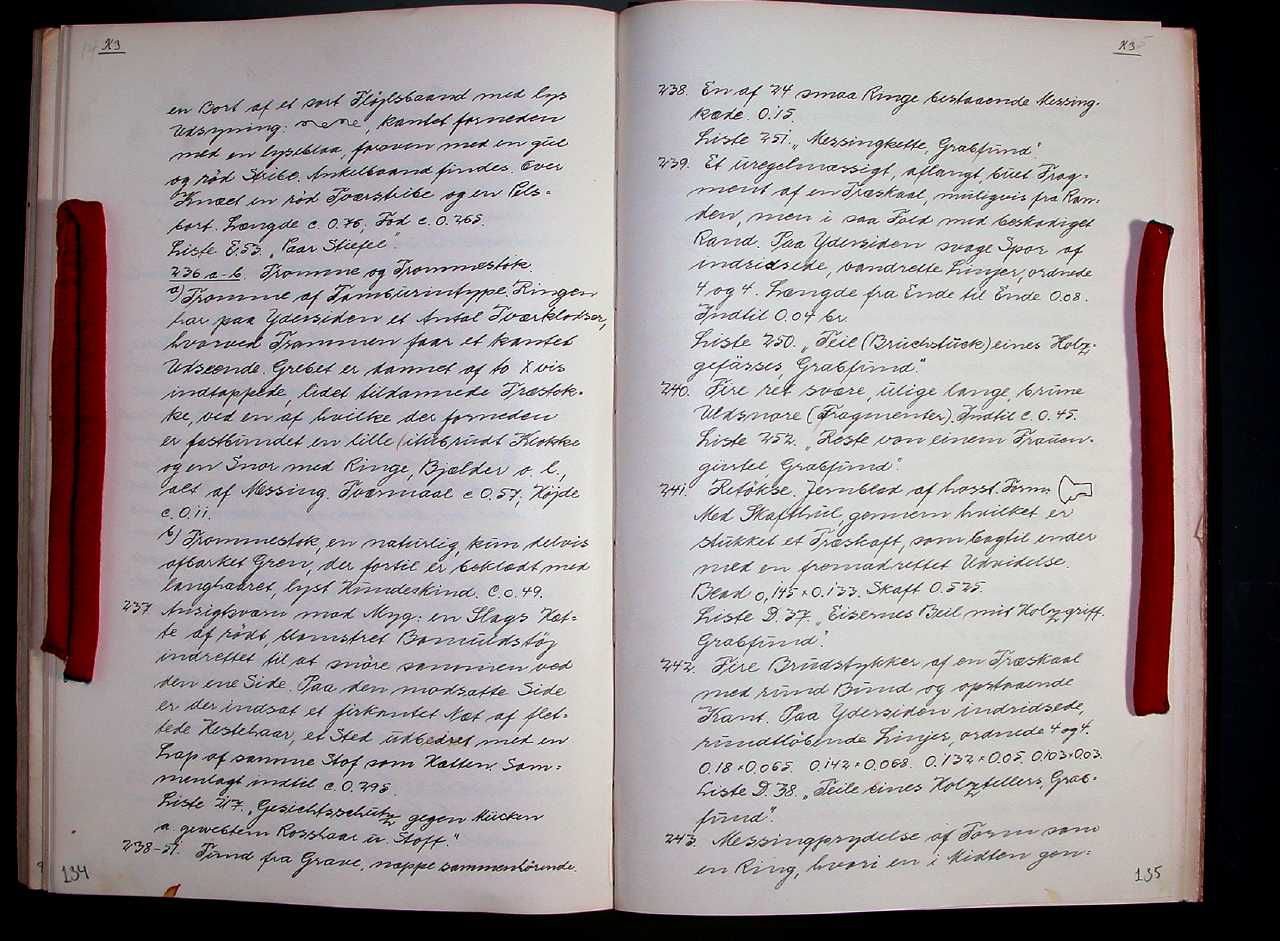 K3
en Bort af et sort Fløjlsbaand med lys
Udsyning: , kantet forneden
med en lyseblaa, foroven med en gul
og rød Stribe. Ankelbaand findes. Over
Knæet en rød Tværstribe og en Pels-
bort. Længde c. 0.76, Fod c. 0.265.
Liste E.53. „Paar Stiefel".
236 a-b. Tromme og Trommestok.
a) Tromme af Tamburintype. Ringen
har paa Ydersiden et Antal Tværklodser,
hvorved Trommen faar et kantet
Udseende. Grebet er dannet af to X vis
indtappede, lidet tildannede Træstok-
ke, ved en af hvilke der forneden
er fastbundet en lille (itubrudt Klokke
og en Snor med Ringe, Bjælder o. l.,
alt af Messing. Tværmaal c 0.57, Højde
c. 0.11.
b) Trommestok, en naturlig, kun delvis
afbarket Gren, der fortil er beklædt med
langhaaret, lyst Hundeskind. C. 0.49.
237. Ansigtsværn mod Myg: en Slags Hæt-
te af rödt, blomstret Bomuldstöj
indrettet til at snöre sammen ved
den ene Side. Paa den modsatte Side
er der indsat et firkantet Næt af flet-
tede Hestehaar, et Sted udbedret med en
Lap af samme Stof som Hætten. Sam-
menlagt indtil c. 0.295.
Liste 217. „Gesichtsschutz gegen Mücken
a. gewebtem Rosshaar u. Stoff."
238-51. Fund fra Grave, næppe sammenhörende.
134
K3
238. En af 24 smaa Ringe bestaaende Messing-
kæde. 0.15.
Liste 251. „Messingkette, Grabfund".
239. Et uregelmæssigt, aflangt buet Frag-
ment af en Træskaal, muligvis fra Ran-
den, men i saa Fald med beskadiget
Rand. Paa Ydersiden svage Spor af
indridsede, vandrette Linjer, ordnede
4 og 4. Længde fra Ende til Ende 0.08.
Indtil 0.04 br.
Liste 250. „Teil (Bruchstück) eines Holz-
gefässes, Grabfund."
240. Fire ret svære, ulige lange, brune
Uldsnore (Fragmenter). Indtil c. 0.45.
Liste 252. „Reste von einem Frauen-
gürtel Grabfund".
241. Retökse. Jernblad af hosst. Form
Med Skafthul, gennem hvilket er
stukket et Træskaft, som bagtil ender
med en fremadrettet Udvidelse.
Blad 0,145 × 0.133. Skaft 0.525.
Liste D. 37. „Eisernes Beil mit Holzgriff.
Grabfund".
242. Fire Brudstykker af en Træskaal
med rund Bund og opstaaende
Kant. Paa Ydersiden indridsede,
rundtlöbende Linjer, ordnede 4 og 4.
0.18 × 0.065. 0.142 × 0.068. 0.132 × 0.05. 0.103 × 0.03.
Liste D. 38. „Teile eines Holztellers, Grab-
fund".
243. Messingprydelse af Form som
en Ring, hvori en i Midten gen-
135